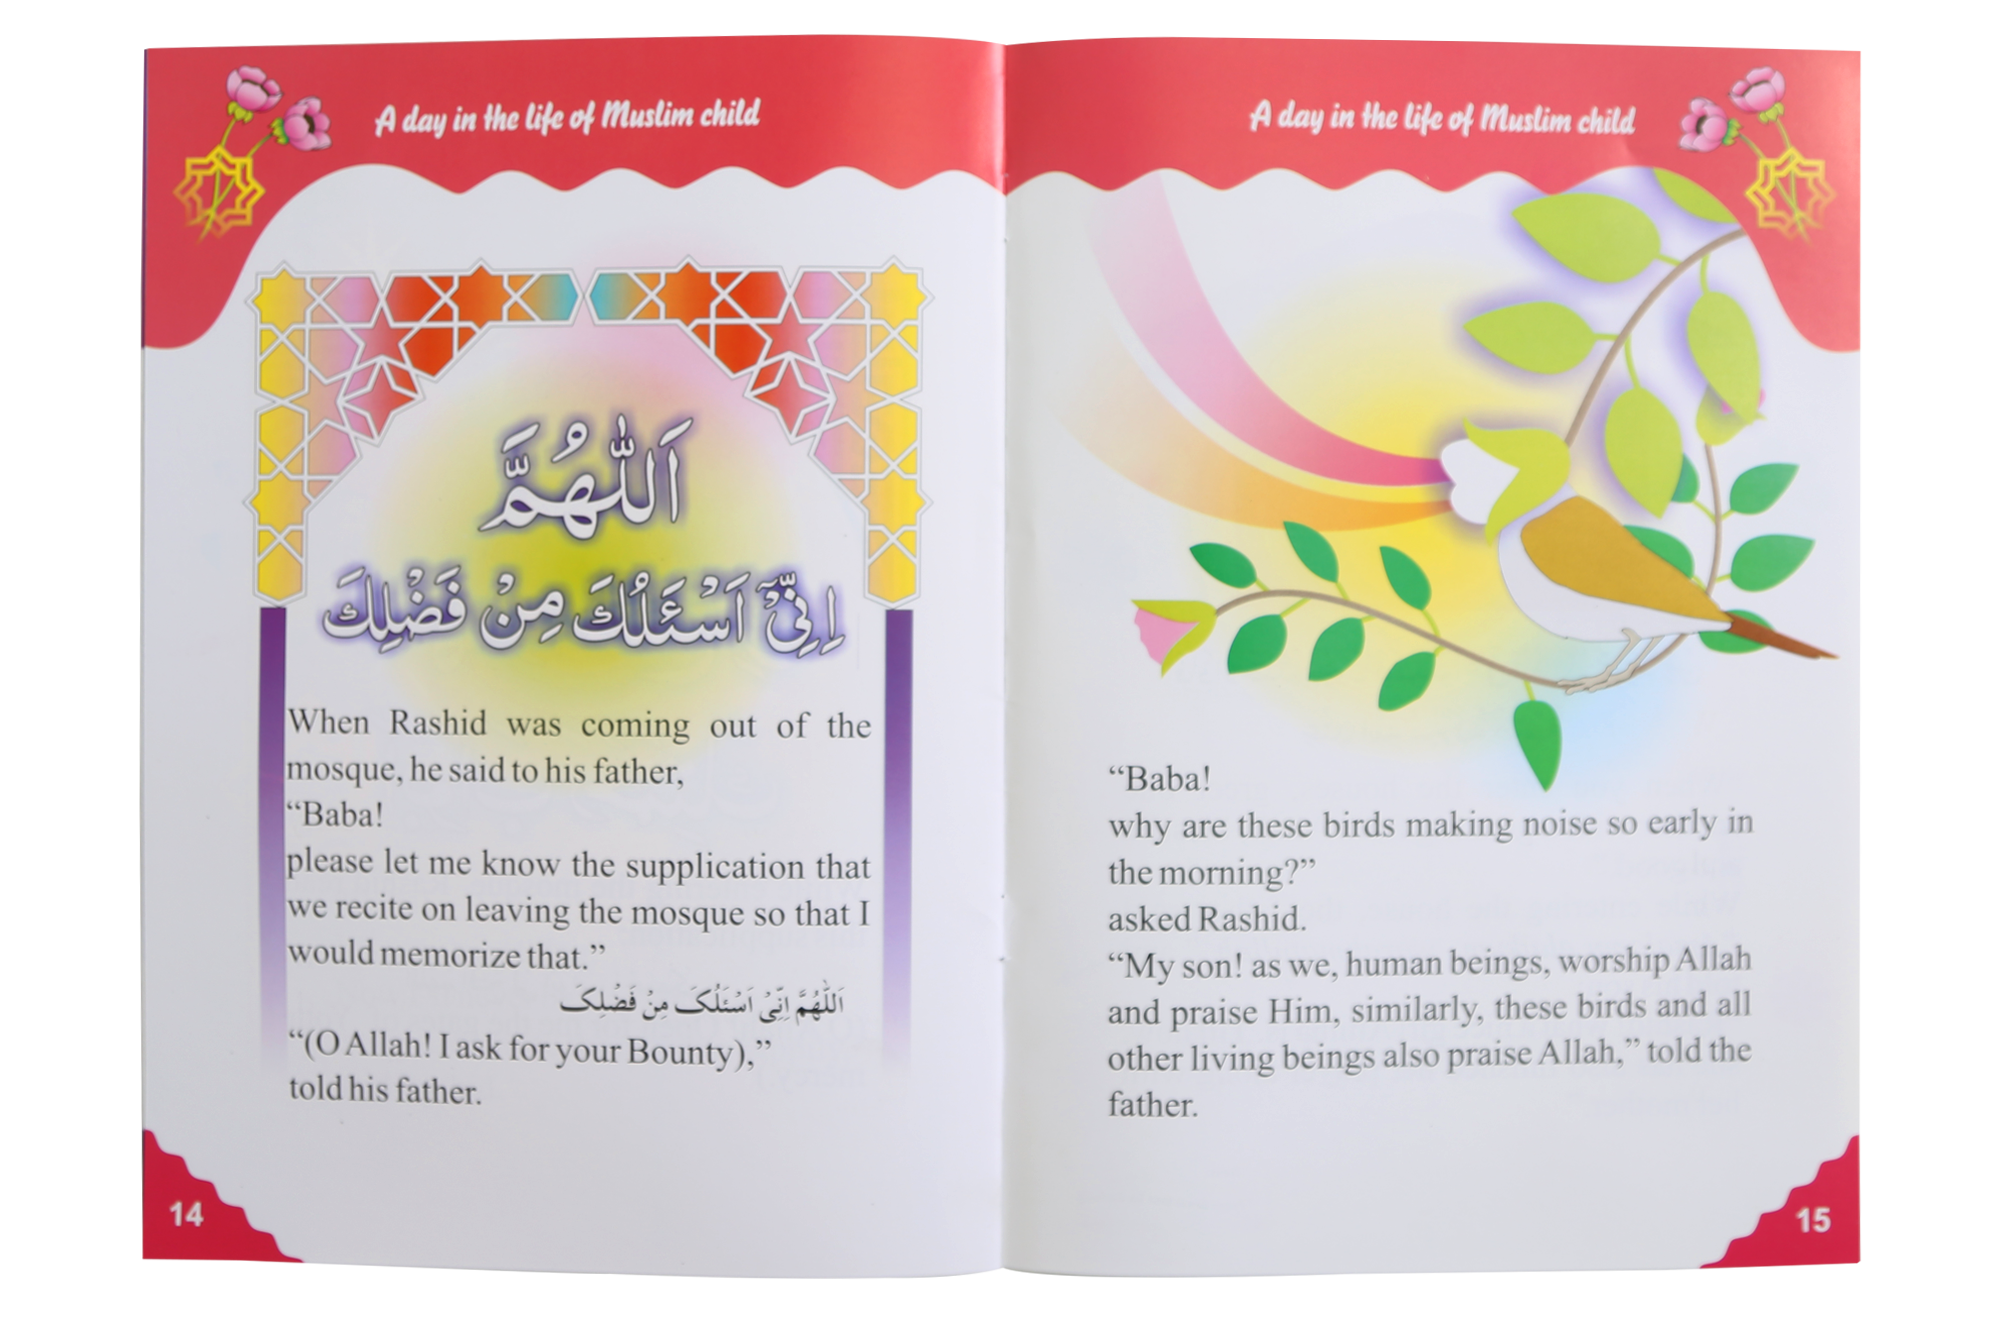 A day in the life of Muslim child
اَللّٰهُمَّ
اِنِّیْٓ اَسْئَلُكَ مِنْ فَضْلِكَ
When Rashid was coming out of the
mosque, he said to his father,
“Baba!
please let me know the supplication that
we recite on leaving the mosque so that I
would memorize that.”
اَللّٰهُمَّ اِنِّیْ اَسْئَلُکَ مِنْ فَضْلِکَ
“(O Allah! I ask for your Bounty),”
told his father.
14
A day in the life of Muslim child
“Baba!
why are these birds making noise so early in
the morning?”
asked Rashid.
“My son! as we, human beings, worship Allah
and praise Him, similarly, these birds and all
other living beings also praise Allah,” told the
father.
15